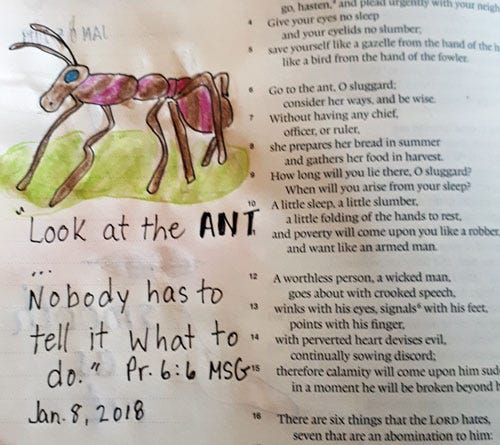 "Look at the ANT
...
Nobody has to
tell it what to
do." Pr. 6:6 MSG
Jan. 8, 2018
go, hasten, and plead urgently with your neigh
4 Give your eyes no sleep
and your eyelids no slumber;
5 save yourself like a gazelle from the hand of the
like a bird from the hand of the fowler.
6 Go to the ant, O sluggard;
consider her ways, and be wise.
7 Without having any chief,
officer, or ruler,
8 she prepares her bread in summer
and gathers her food in harvest.
9 How long will you lie there, O sluggard?
When will you arise from your sleep?
10 A little sleep, a little slumber,
a little folding of the hands to rest,
11 and poverty will come upon you like a robber,
and want like an armed man.
12 A worthless person, a wicked man,
goes about with crooked speech,
13 winks with his eyes, signals with his feet,
points with his finger,
14 with perverted heart devises evil,
continually sowing discord;
15 therefore calamity will come upon him sud
in a moment he will be broken beyond
16 There are six things that the LORD hates,
seven that are an abomination to him: